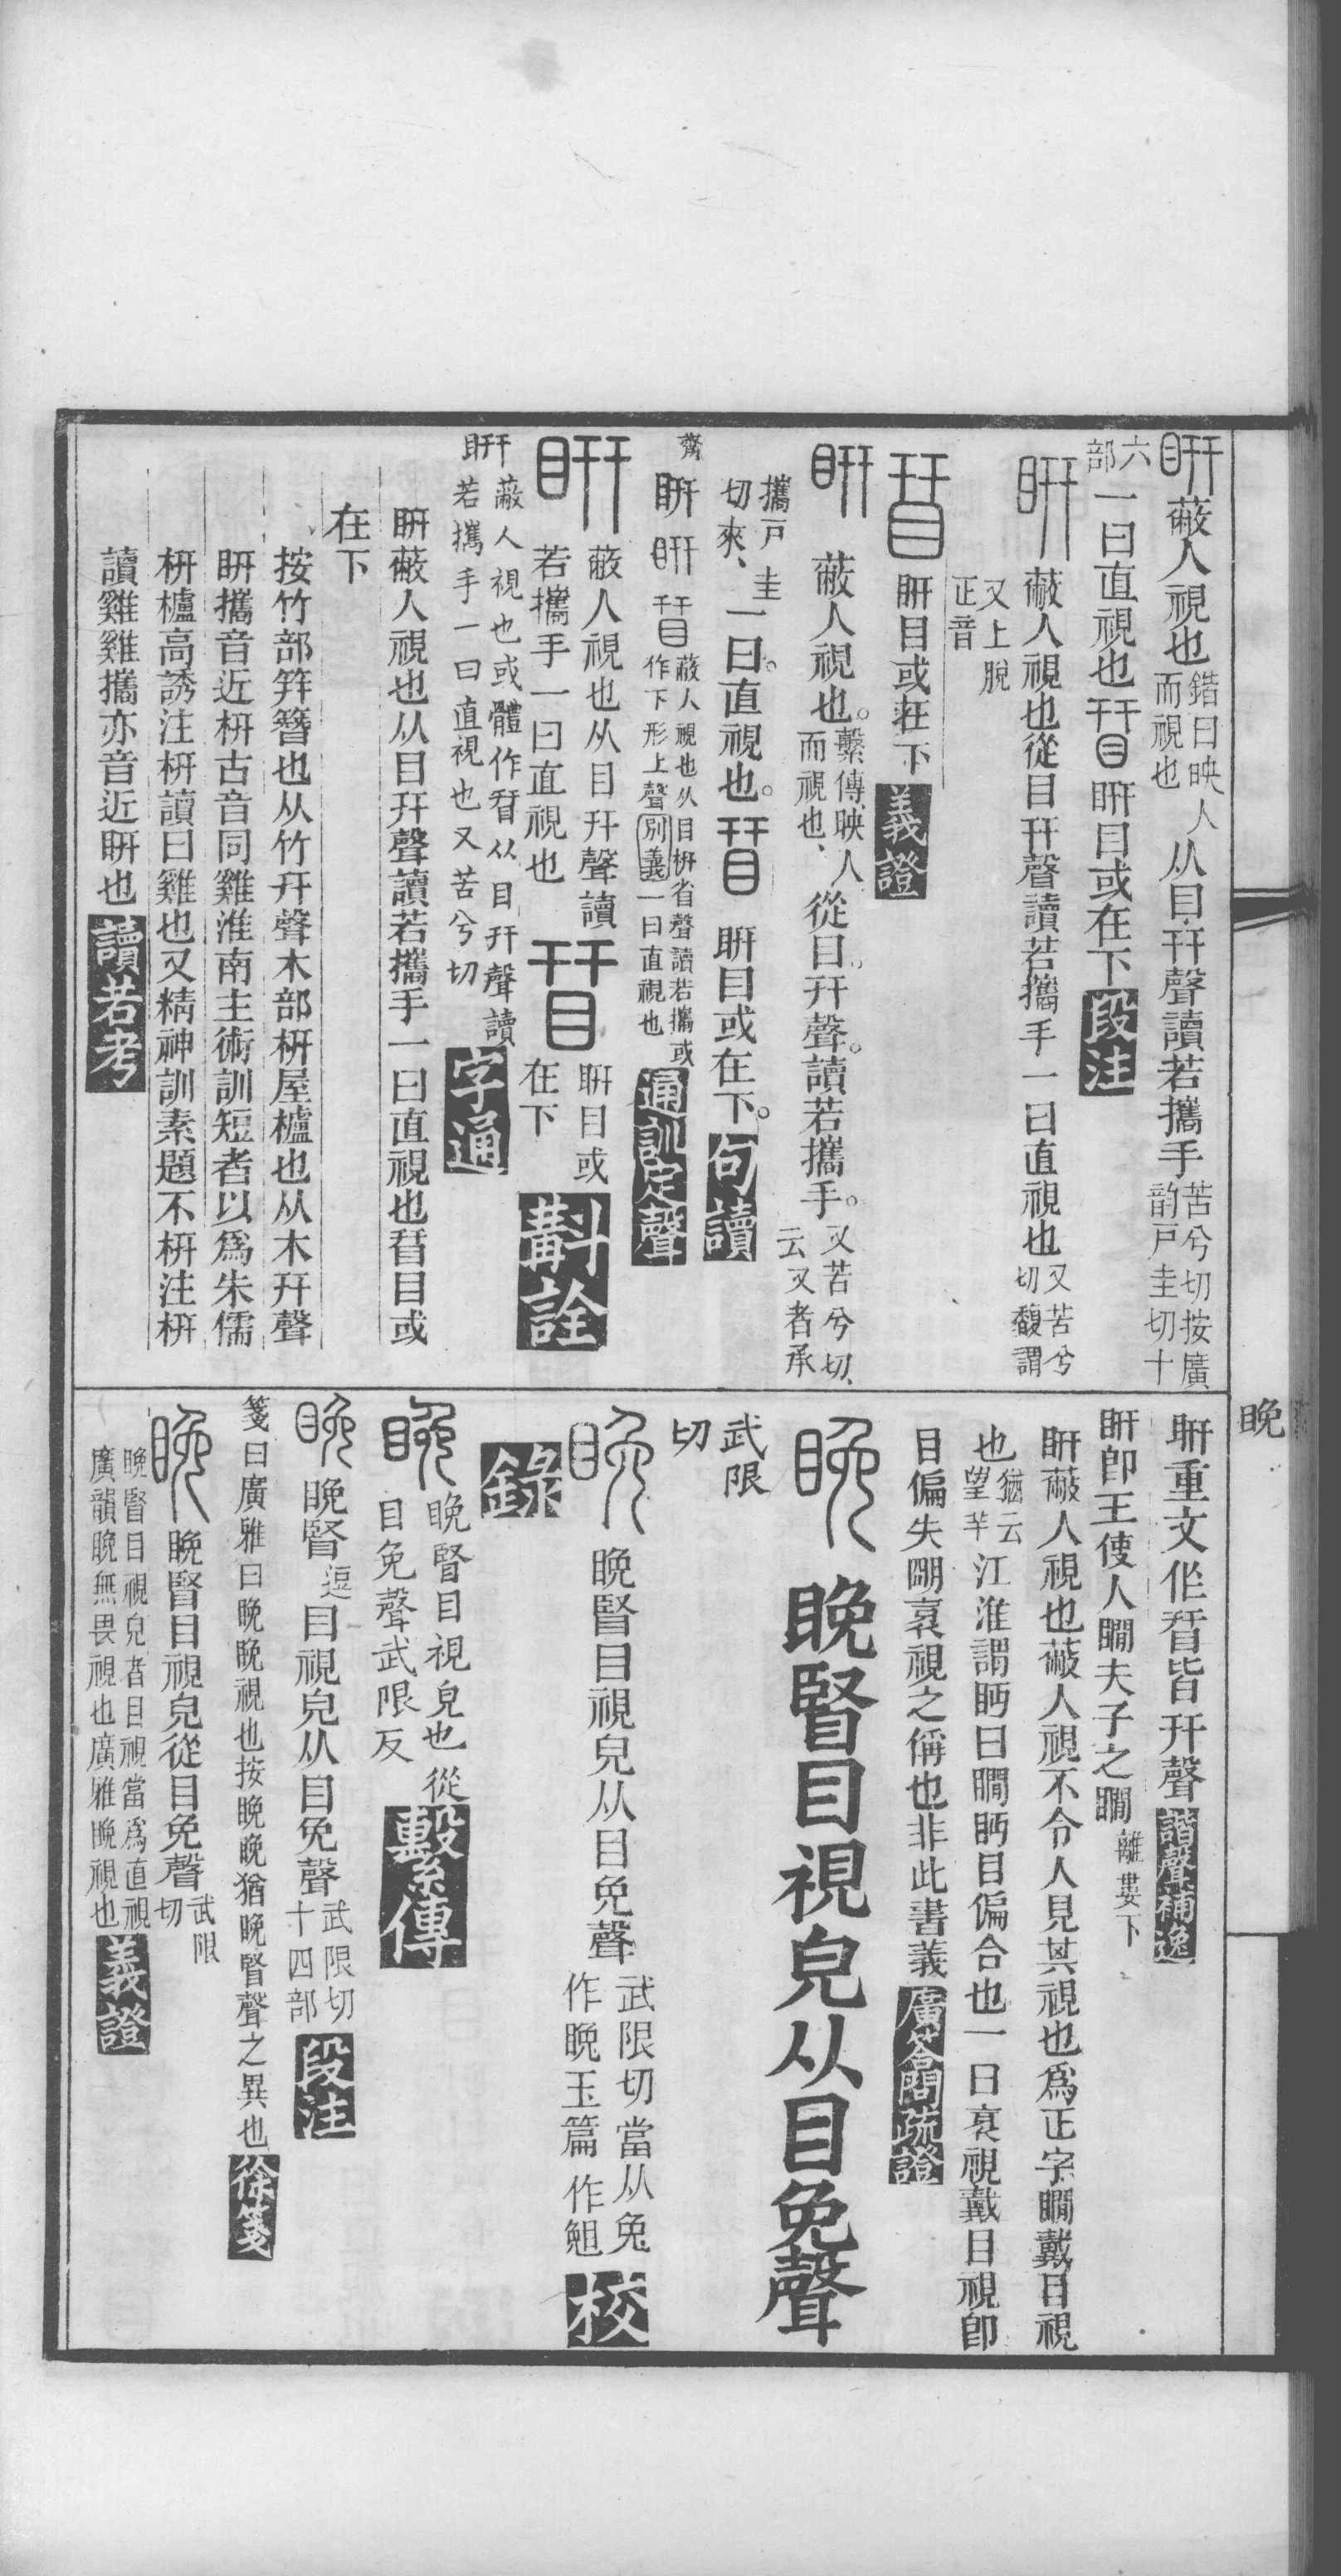 蔽人視也錯曰映人而視也从目幵聲讀若攜手苦兮切按廣韵戸圭切十
六部一曰直視也 䀘目或在下段注
蔽人視也從目幵聲讀若攜手一曰直視也又苦兮切馥謂
又上脫正音
䀘目或在下義證
蔽人視也。繫傳映人而視也、從目。幵聲。讀若攜手。又苦兮切、云又者承
攜戸圭切來、一曰。直視也。 䀘目或在下。句讀
齊 䀘 蔽人視也从目枅省聲讀若攜或作下形上聲別義一曰直視也通訓定聲
蔽人視也从目幵聲讀若攜手一曰直視也 䀘目或在下斠詮
䀘蔽人視也或體作㫷从目幵聲讀若攜手一曰直視也又苦兮切字通
䀘蔽人視也从目幵聲讀若攜手一曰直視也 目或
在下
按竹部筓簪也从竹幵聲木部枅屋櫨也从木幵聲
䀘攜音近枅古音同雞淮南主術訓短者以爲朱儒
枅櫨高誘注枅讀曰雞也又精神訓素題不枅注枅
讀雞雞攜亦音近䀘也讀若考
晚
䀘重文作 皆幵聲諧聲補逸
䀘卽王使人瞷夫子之瞷離婁下
䀘蔽人視也蔽人視不令人見其視也爲正字瞷戴目視
也猶云望羊江淮謂眄曰瞷眄目偏合也一曰衺視戴目視卽
目偏失朙衺視之稱也非此書義廣答問疏證
㫘㫘賢目視皃从目免聲
武限切
㫘賢目視皃从目免聲武限切當从兔作㫘玉篇作䚉校
錄
㫘賢目視皃也從目免聲武限反繫傳
㫘賢逗目視皃从目免聲武限切十四部段注
箋曰廣雅曰㫘㫘視也按㫘㫘猶㫘賢聲之異也徐箋
㫘賢目視皃從目免聲武限切
㫘賢目視皃者目視當爲直視廣韻㫘無畏視也廣雅㫘視也義證